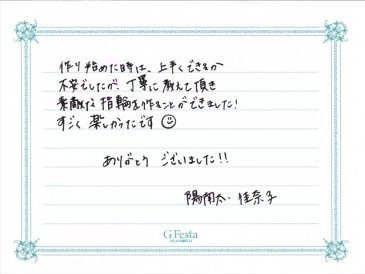 作り始めた時は、上手くできるか
不安でしたが、丁寧に教えて頂き
素敵な指輪を作ることができました!
すごく楽しかったです☺
ありがとうございました!!
陽太・佳奈子
G.Festa